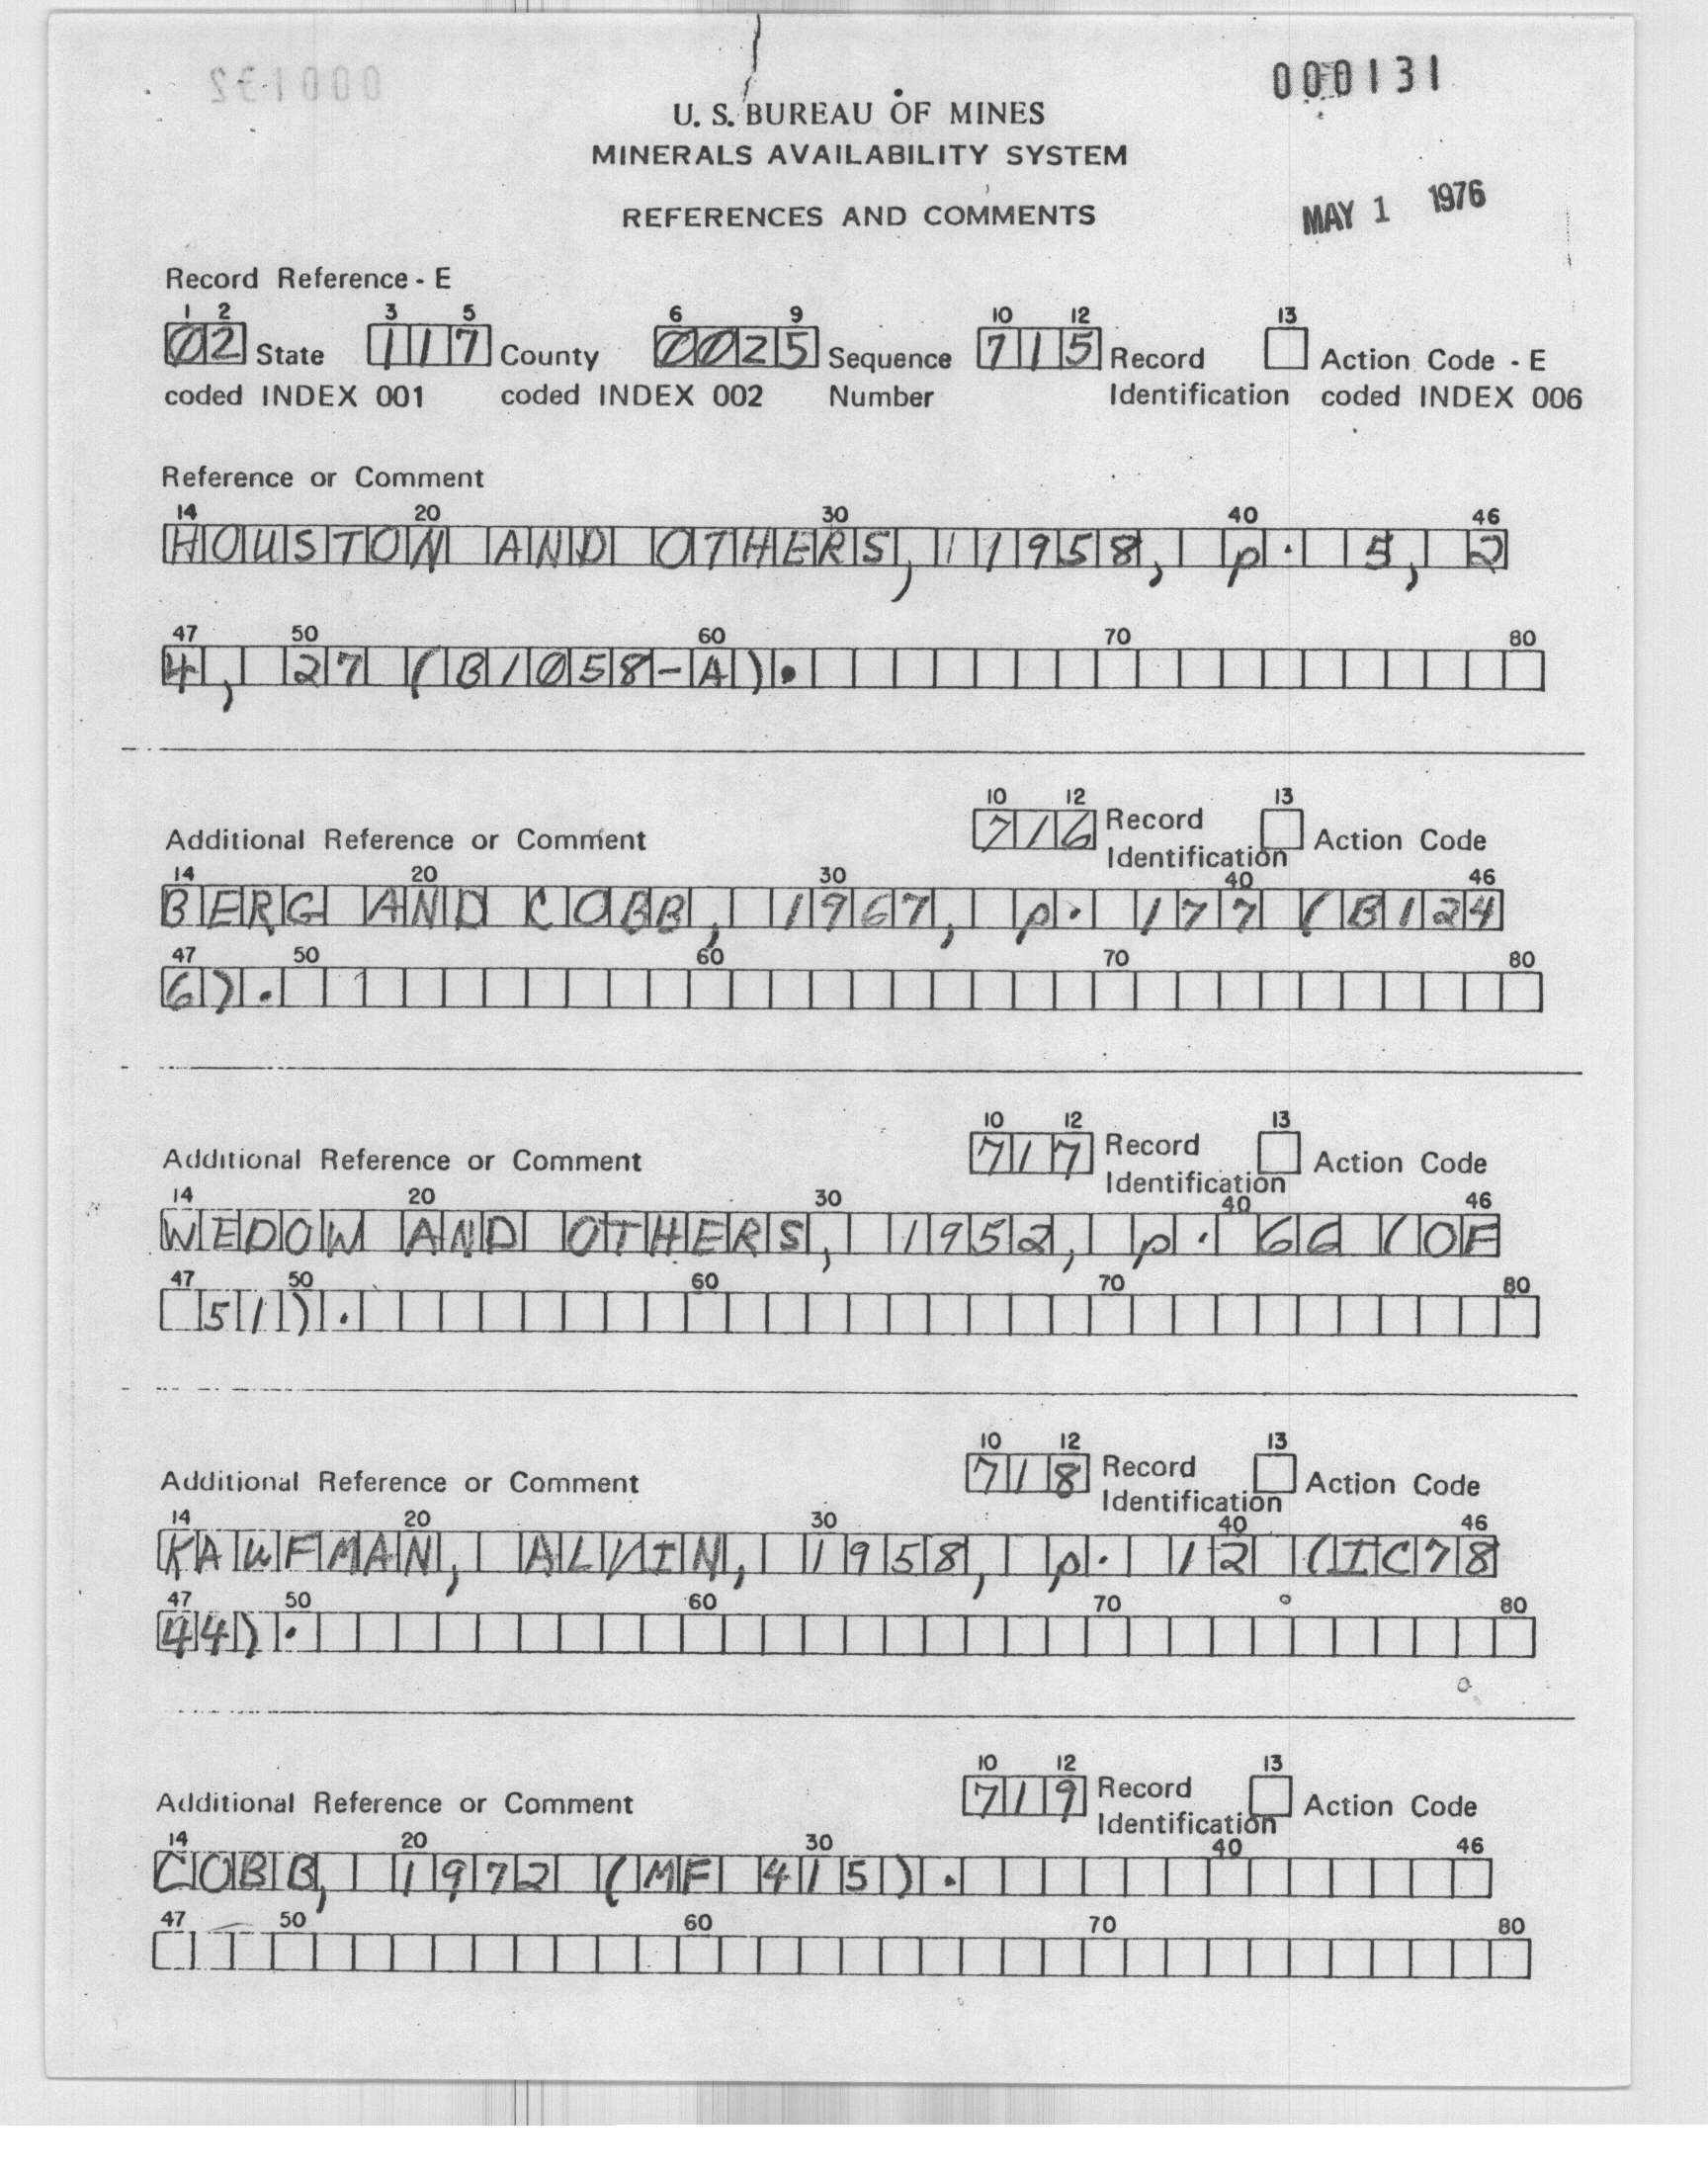 000132
000131
U. S. BUREAU OF MINES
MINERALS AVAILABILITY SYSTEM
REFERENCES AND COMMENTS
MAY 1 1976
Record Reference - E
1 2 3 5 6 9 10 12 13
02 State 117 County 0025 Sequence 715 Record Action Code - E
coded INDEX 001 coded INDEX 002 Number Identification coded INDEX 006
Reference or Comment
14 20 30 40 46
HOUSTON AND OTHERS, 1958, p. 5, 2
47 50 60 70 80
4, 27 (B1058-A).
10 12 13
716 Record
Additional Reference or Comment Identification Action Code
14 20 30 40 46
BERG AND COBB, 1967, p. 177 (B124
47 50 60 70 80
6).
10 12 13
717 Record
Additional Reference or Comment Identification Action Code
14 20 30 40 46
WEDOW AND OTHERS, 1952, p. 66 (OF
47 50 60 70 80
51).
10 12 13
718 Record
Additional Reference or Comment Identification Action Code
14 20 30 40 46
KAUFMAN, ALVIN, 1958, p. 12 (IC78
47 50 60 70 80
44).
10 12 13
719 Record
Additional Reference or Comment Identification Action Code
14 20 30 40 46
COBB, 1972 (MF 415).
47 50 60 70 80